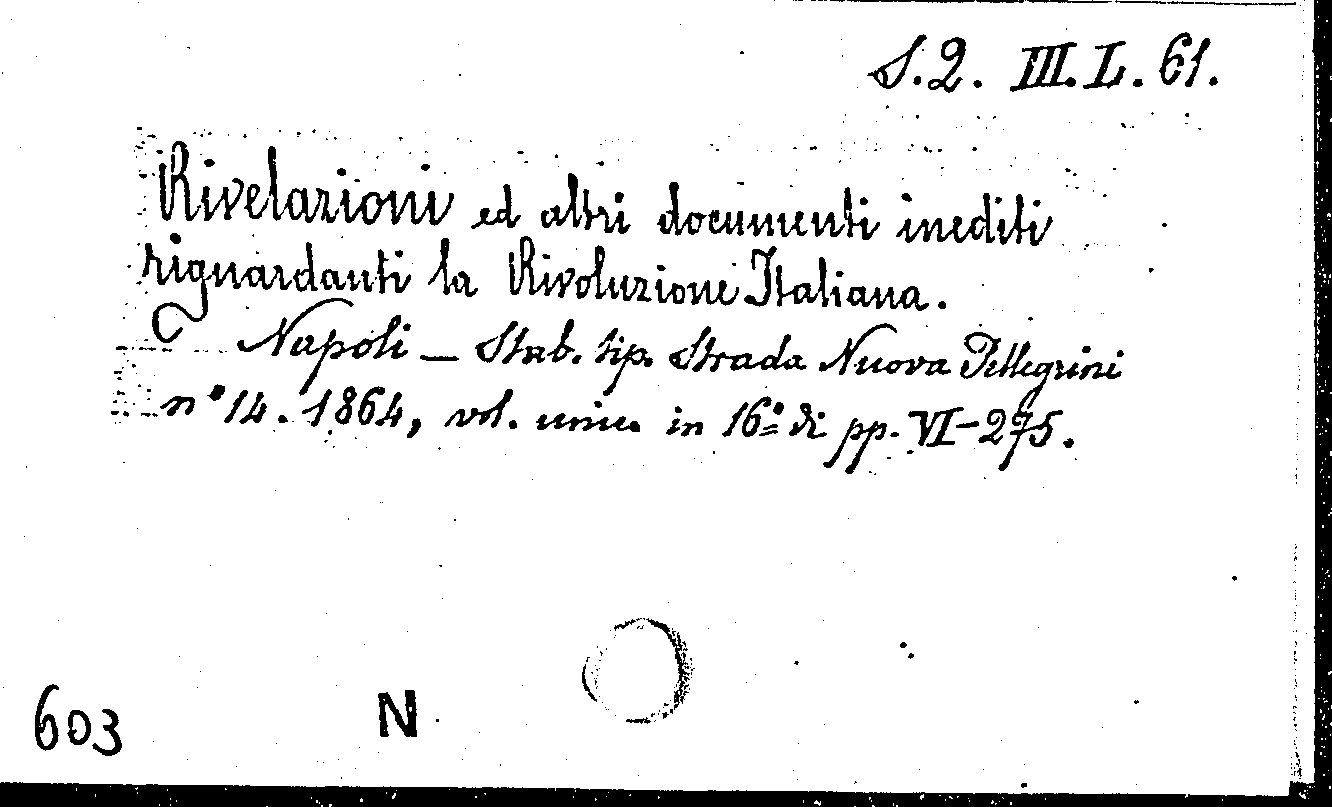 S.2. III.L.61.
Rivelazioni ed altri documenti inediti
riguardanti la Rivoluzione Italiana.
Napoli — Stab. tip. Strada Nuova Pellegrini
n° 14. 1864, vol. unic. in 16° di pp. VI-275.
603 N